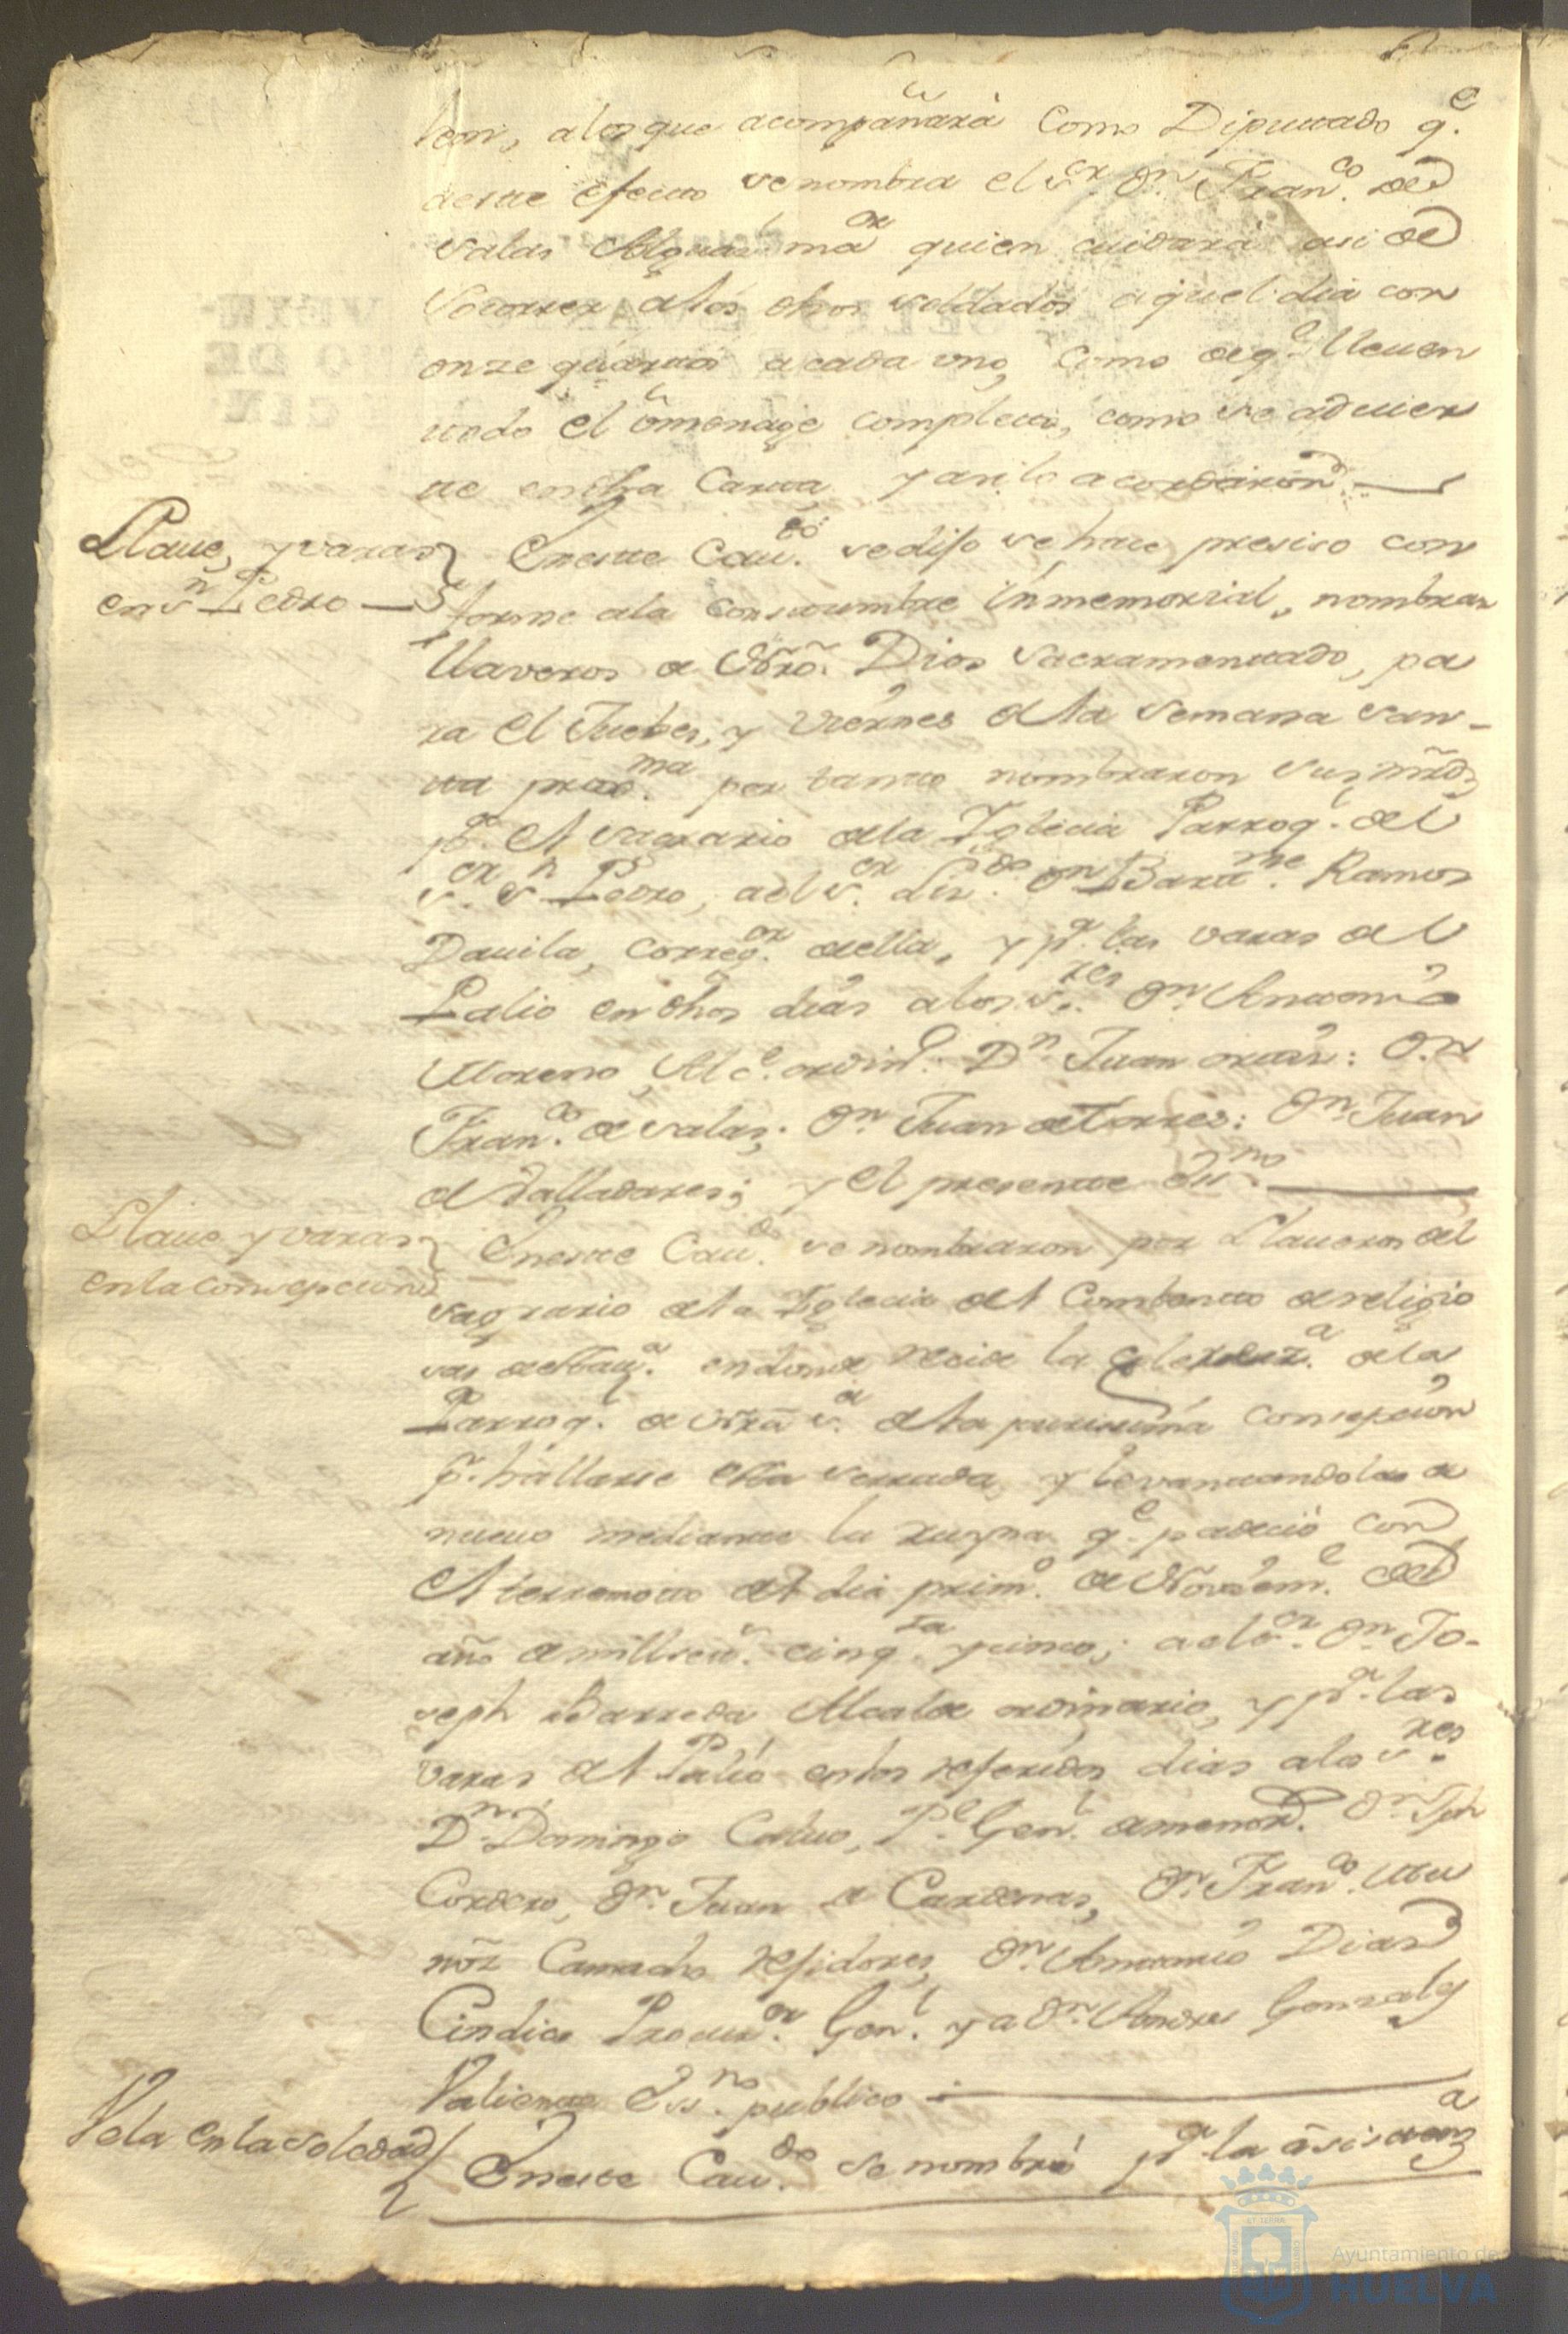 leon, alos que acompañará Como Diputado q.e
deste efecto se nombra el s.or d.n Fran.co de
Salas Alguas.l ma.or quien cuidará asi de
Socorrer a los dhos soldados aquel dia con
onze quartos a cada uno, Como de q.e lleuen
todo el omenage completo, como se aduier
te en dha Carta y asi lo acordaron
Llaue, y varas
en s.n Pedro
En este Cau.do se dijo se hace preciso con
forme ala Constumbre inmemorial, nombrar
llaveros a Ntrô. Dios Sacramentado, pa
ra el Juebes, y Viernes de la Semana San-
ta prox.ma por tanto nombraron sus mrds
p.a el Sagrario de la Iglecia Parroq.l del
s.or s.n Pedro, a el s.or Liz.do d.n Barme. Ramos
Dauila, Correg.or de ella, y p.a las varas del
Palio en dhos dias a los s.res d.n Antonio
Moreno, Alc.e ordin.o D.n Juan ortiz: d.n
Fran.co de Salas; d.n Juan de Torres: d.n Juan
de Valladares; y el presente Ess.no
Llaue y varas
en la Consepcion
En este Cau.do se nombraron por Llaueros del
Sagrario de la Iglecia del Combento de religio
sas de esta V.a en donde recide la de la
Parroq.l de Ntrâ s.a de la purissima Consepcion
p.r hallarse esta serrada, y levantandola de
nuevo mediante la ruyna q.e padeció con
el terremoto del dia prim.o de Noviem.e del
año de mill sets. cinq.ta y cinco; a el s.or d.n Jo-
seph Barreda Alcalde ordinario, y p.a las
Varas del Palio en los referidos dias a los s.res
D.n Domingo Calvo, P.e Gen.l de menor.s d.n Jph
Cordero, d.n Juan de Cardenas, d.n Fran.co Mu
ñoz Camacho regidores, d.n Antonio Dias
Cindico Procur.or Gen.l y a d.n Andres Gonzales
Valiente Ess.no publico
Vela en la Soledad
En este Cau.do se nombró p.a la asistenz.a
Ayuntamiento de
HUELVA